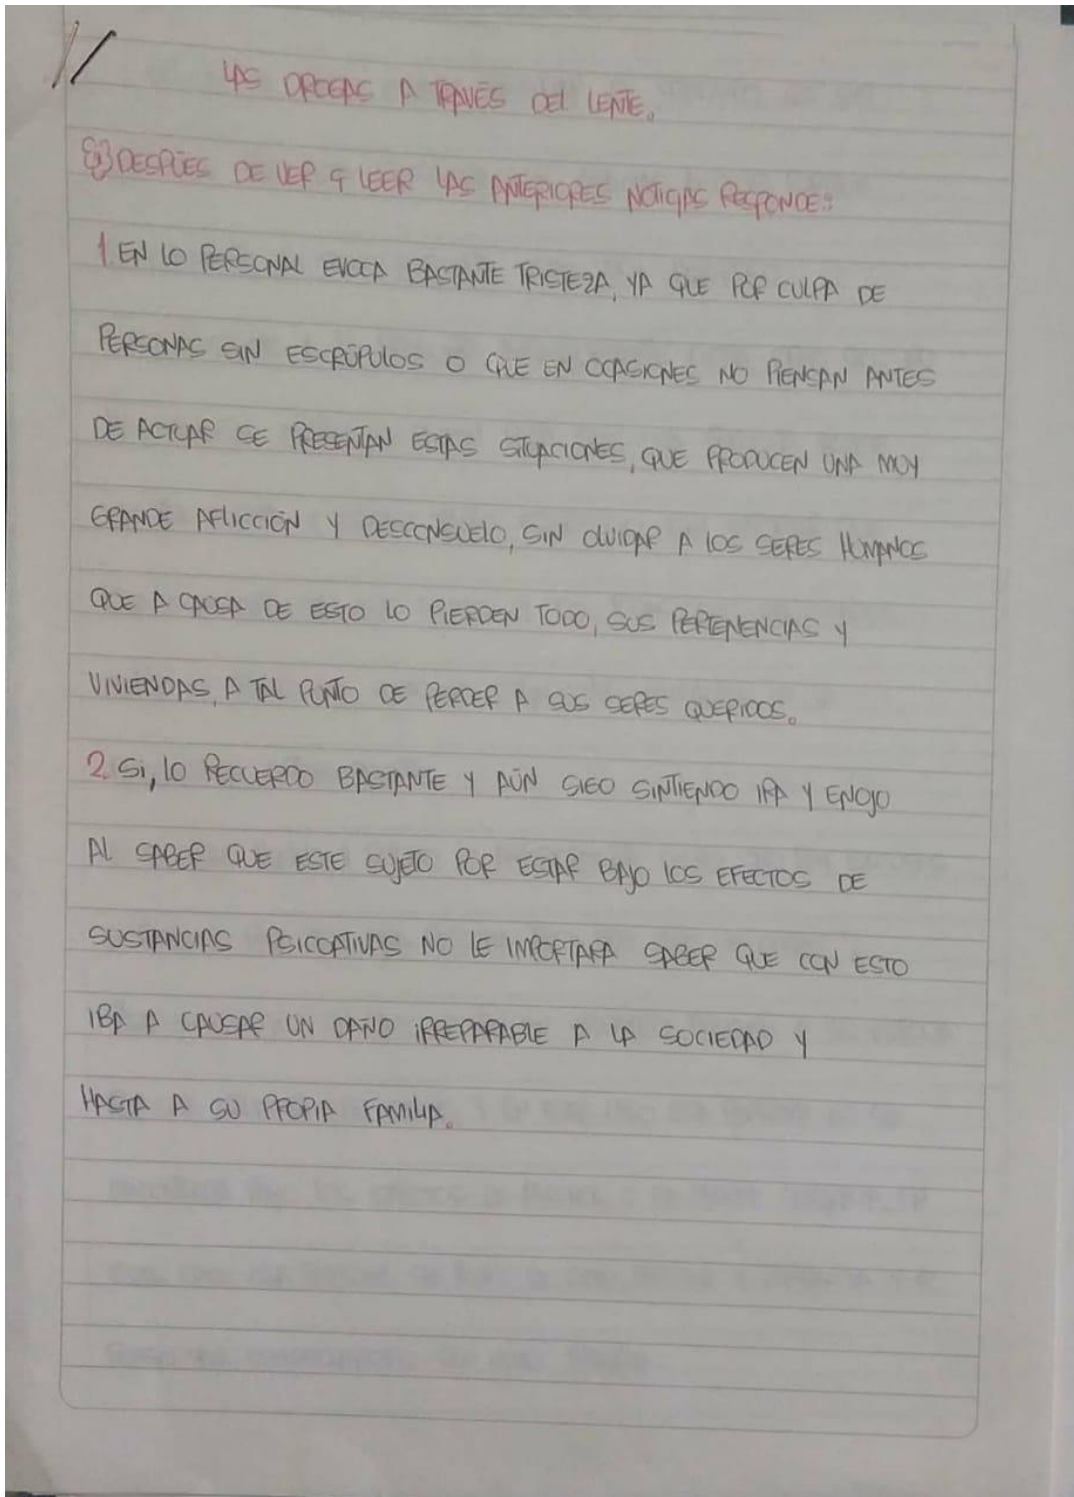 LAS DROGAS A TRAVÉS DEL LENTE.
DESPÚES DE VER Y LEER LAS ANTERIORES NOTICIAS RESPONDE:
1. EN LO PERSONAL EVOCA BASTANTE TRISTEZA, YA QUE POR CULPA DE
PERSONAS SIN ESCRÚPULOS O QUE EN OCASIONES NO PIENSAN ANTES
DE ACTUAR SE PRESENTAN ESTAS SITUACIONES, QUE PRODUCEN UNA MUY
GRANDE AFLICCIÓN Y DESCONSUELO, SIN OLVIDAR A LOS SERES HUMANOS
QUE A CAUSA DE ESTO LO PIERDEN TODO, SUS PERTENENCIAS Y
VIVIENDAS, A TAL PUNTO DE PERDER A SUS SERES QUERIDOS.
2. Si, LO RECUERDO BASTANTE Y AÚN SIGO SINTIENDO IRA Y ENOJO
AL SABER QUE ESTE SUJETO POR ESTAR BAJO LOS EFECTOS DE
SUSTANCIAS PSICOATIVAS NO LE IMPORTARA SABER QUE CON ESTO
IBA A CAUSAR UN DAÑO IRREPARABLE A LA SOCIEDAD Y
HASTA A SU PROPIA FAMILIA.